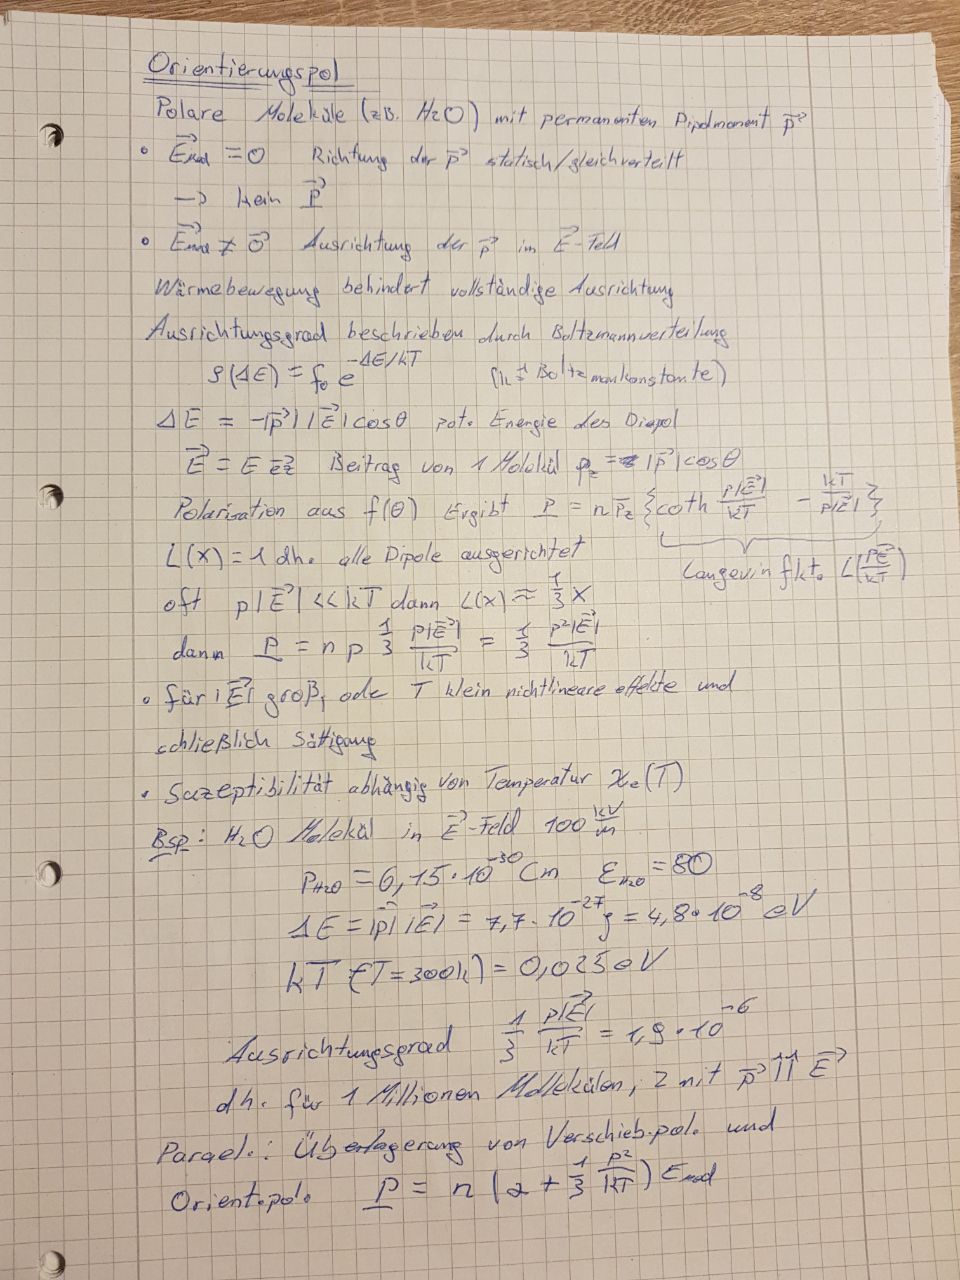 Orientierungspol
Polare Moleküle (zB. H2O) mit permanenten Dipolmoment p⃗
• E⃗mol = 0 Richtung der p⃗ statisch/gleichverteilt
→ kein P⃗
• E⃗mol ≠ 0⃗ Ausrichtung der p⃗ im E⃗-Feld
Wärmebewegung behindert vollständige Ausrichtung
Ausrichtungsgrad beschrieben durch Boltzmannverteilung
ρ(ΔE) = f₀ e^(-ΔE/kT) (k = Boltzmankonstante)
ΔE = -|p⃗| |E⃗| cosθ pot. Energie des Diapol
E⃗ = E e⃗z Beitrag von 1 Molekül pz = |p⃗| cosθ
Polarisation aus f(θ) Ergibt P = n p̄z {coth p|E⃗|/kT - kT/p|E⃗|}
L(x) = 1 dh. alle Dipole ausgerichtet Langevin fkt. L(pE⃗/kT)
oft p|E⃗| << kT dann L(x) ≈ 1/3 x
dann P = n p 1/3 p|E⃗|/kT = 1/3 p²|E⃗|/kT
• für |E⃗| groß, ode T klein nichtlineare effekte und
schließlich Sättigung
• Suzeptibilität abhängig von Temperatur χe(T)
Bsp: H2O Molekül in E⃗-Feld 100 kV/m
pH2O = 6,15·10^-30 Cm εH2O = 80
ΔE = |p⃗| |E⃗| = 7,7·10^-27 J = 4,8·10^-8 eV
kT (T=300k) = 0,025eV
Ausrichtungsgrad 1/3 p|E⃗|/kT = 1,9·10^-6
dh. für 1 Millionen Mollekülen, 2 mit p⃗ ↑↑ E⃗
Parael.: Überlagerung von Verschieb.pol. und
Orient.pol. P = n (α + 1/3 p²/kT) Emol